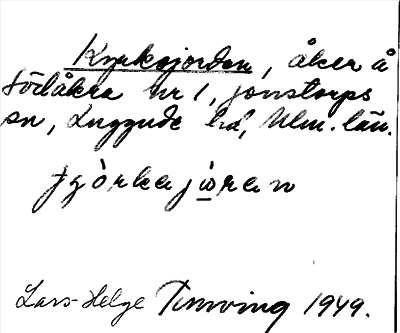 Kyrkojorden, åker å
Södåkra nr 1, Jonstorps
sn, Luggude hd, Mlm. län.
Lars-Helge Tunving 1949.